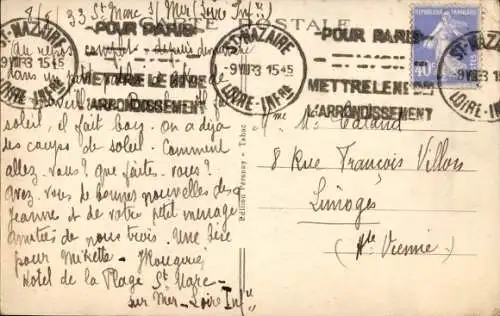 8/8/33 St Marc s/ Mer (Loire Infre)
CARTE POSTALE
ST-NAZAIRE
-9 VIII 33 15 45
LOIRE-INFRE
POUR PARIS
METTRE LE N° DE
L'ARRONDISSEMENT
ST-NAZAIRE
-9 VIII 33 15 45
LOIRE-INFRE
POUR PARIS
METTRE LE N° DE
L'ARRONDISSEMENT
RÉPUBLIQUE FRANÇAISE
40c
ST-NAZAIRE
-9 VIII 33 15 45
LOIRE-INFRE
Au repos complet depuis
dans un petit
soleil, il fait bon. On a déjà
des coups de soleil. Comment
allez-vous? que faites-vous?
avez-vous de bonnes nouvelles de
Jeanne et de votre petit ménage
amitiés de nous trois. Une bise
pour Mirette -
Hotel de la Plage St Marc-
sur Mer - Loire Infre
Edition Versnoy - Tabac
Mme
8 Rue François Villon
Limoges
(Hte Vienne)